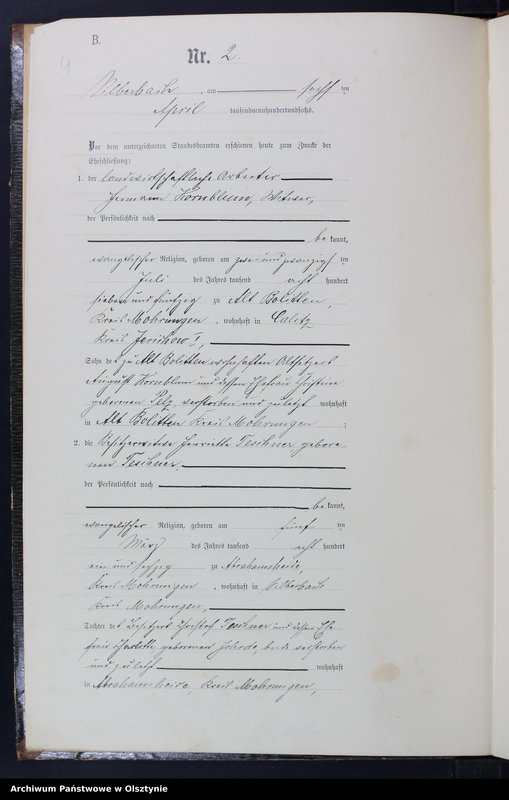 B.
Nr. 2.
Silberbach, am sechs ten
April tausendneunhundertundsechs.
Vor dem unterzeichneten Standesbeamten erschienen heute zum Zwecke der
Eheschließung:
1. der landwirthschaftliche Arbeiter
Hermann Kornblum, Witwer,
der Persönlichkeit nach
be kannt,
evangelischer Religion, geboren am zwei und zwanzigs ten
Juli des Jahres tausend acht hundert
sieben und fünfzig zu Alt Bolitten,
Kreis Mohrungen, wohnhaft in
Kreis Jerichow I,
Sohn des zu Alt Bolitten wohnhaften Altsitzers
August Kornblum und dessen Ehefrau Christine
geborenen Pelz, verstorben und zuletzt wohnhaft
in Alt Bolitten Kreis Mohrungen ;
2. die Besitzerwitwe Henriette Teschner gebore
nen Teschner,
der Persönlichkeit nach
be kannt,
evangelischer Religion, geboren am fünf ten
März des Jahres tausend acht hundert
ein und sechzig zu Abrahamsheide,
Kreis Mohrungen, wohnhaft in Silberbach
Kreis Mohrungen,
Tochter des Besitzers Christof Teschner und dessen Ehe
frau Charlotte geborenen beide verstorben
und zuletzt wohnhaft
in Abrahamsheide, Kreis Mohrungen,
Archiwum Państwowe w Olsztynie